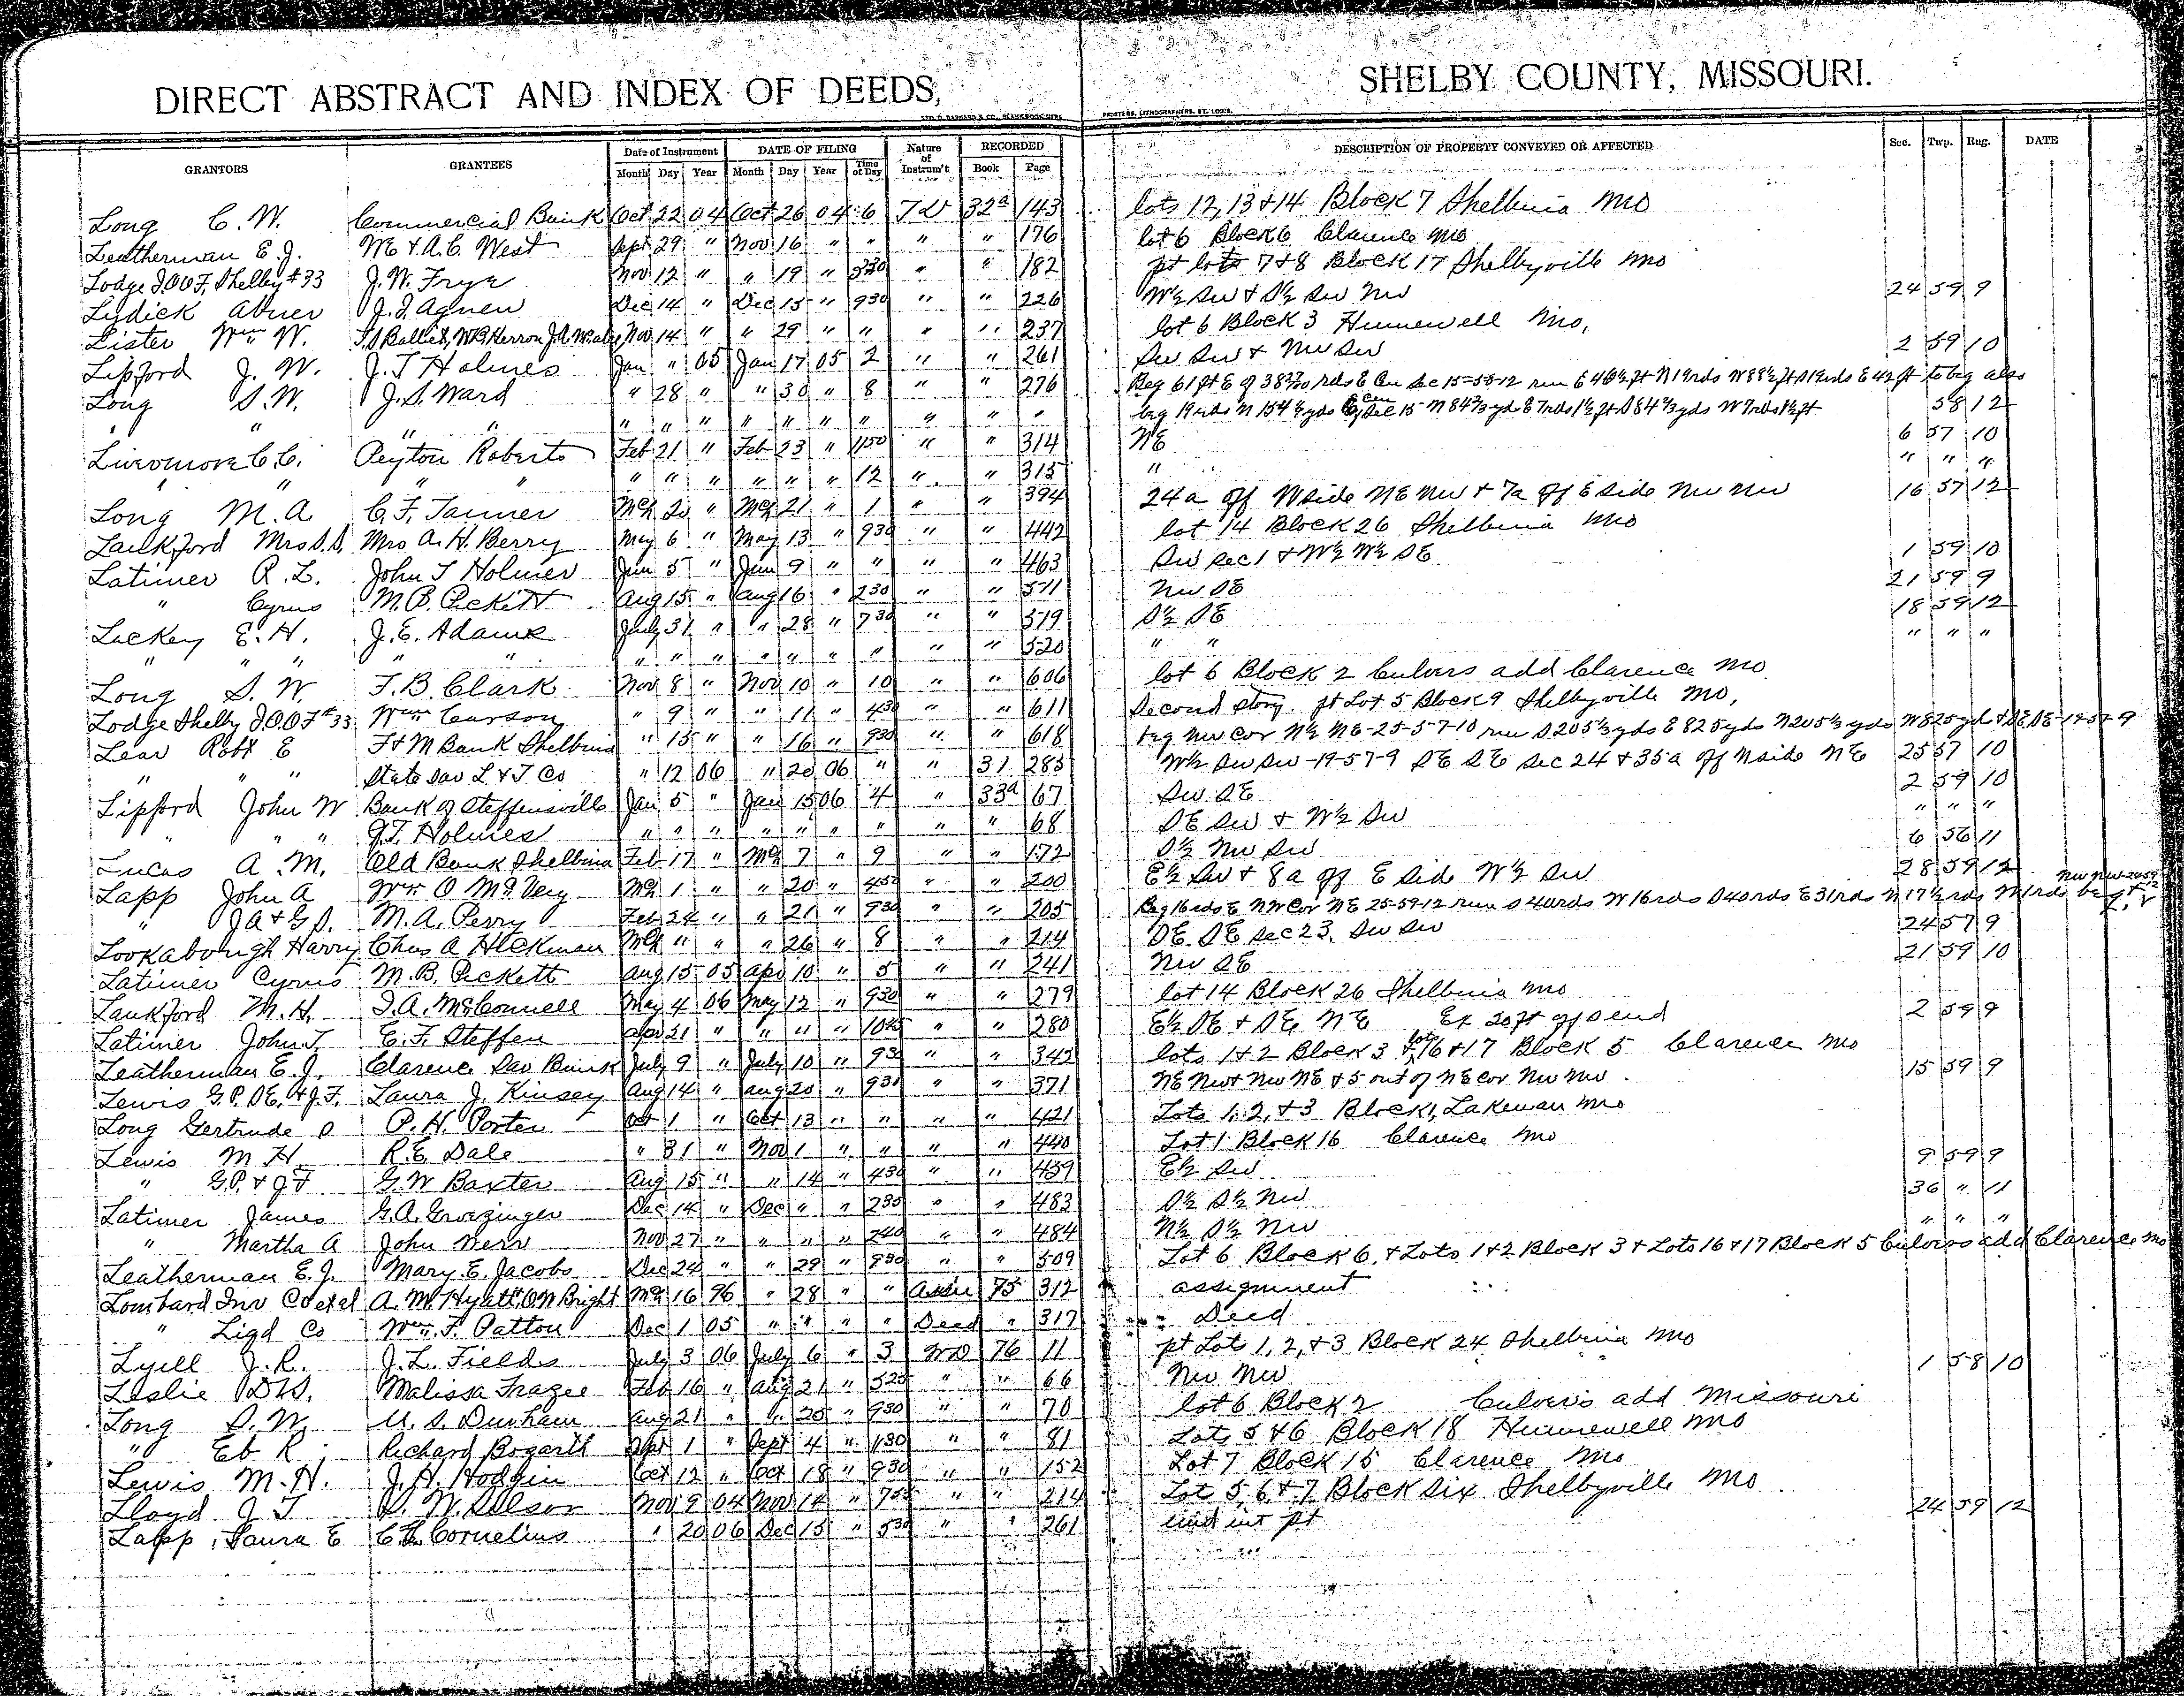 DIRECT ABSTRACT AND INDEX OF DEEDS, SHELBY COUNTY, MISSOURI.
GEO. D. BARNARD & CO., BLANK BOOK MFRS PRINTERS, LITHOGRAPHERS, ST. LOUIS.
GRANTORS GRANTEES Date of Instrument DATE OF FILING Nature of Instrum't RECORDED DESCRIPTION OF PROPERTY CONVEYED OR AFFECTED Sec. Twp. Rng. DATE
Month Day Year Month Day Year Time of Day Book Page
Long C. W. Commercial Bank Oct 22 04 Oct 26 04 6 TD 32a 143 lots 12, 13 & 14 Block 7 Shelbina Mo
Leatherman E. J. WE & A.C. West Sept 29 " Nov 16 " " " " 176 lot 6 Block 6 Clarence Mo
Lodge I.O.O.F. Shelby #33 J. W. Frye Nov 12 " " 19 " " " 182 pt lots 7 & 8 Block 17 Shelbyville Mo
Lydick Abner J. I. Agnew Dec 14 " Dec 15 " 930 " " 226 W½ SW & S½ SW NW 24 59 9
Lister Wm W. Nov 14 " " 29 " " " " 237 lot 6 Block 3 Hunnewell Mo,
Lipford J. W. J. T Holmes Jan " 05 Jan 17 05 2 " " 261 SW SW & NW SW 2 59 10
Long S. W. J. S. Ward " 28 " " 30 " 8 " " 276
" " " " " " " " " " " " " " 58 12
Livermore C. C. Peyton Roberts Feb 21 " Feb 23 " 1150 " " 314 NE 6 57 10
" " " " " " " " " " 12 " " 315 " " " " "
Long M. A C. F. Tanner Mch 20 " Mch 21 " 1 " " 394 24a off W side NE NW & 7a off E side NW NW 16 57 12
Lankford Mrs S. S. Mrs A. H. Berry May 6 " May 13 " 930 " " 442 lot 14 Block 26 Shelbina Mo
Latimer R. L. John T Holmes Jun 5 " Jun 9 " " " " 463 SW Sec 1 & W½ W½ SE 1 59 10
" Cyrus M. B. Pickett Aug 15 " Aug 16 " 230 " " 511 NW SE 21 59 9
Lackey E. H. J. E. Adams July 31 " " 28 " 730 " " 519 S½ SE 18 59 12
" " " " " " " " " " " " " " 520 " " " " "
Long S. W. F. B. Clark Nov 8 " Nov 10 " 10 " " 606 lot 6 Block 2 Culvers add Clarence Mo
Lodge Shelby I.O.O.F #33 Wm Carson " 9 " " 11 " 430 " " 611 Second story pt Lot 5 Block 9 Shelbyville Mo,
Lear Robt E F & M Bank Shelbina " 15 " " 16 " 930 " " 618 beg NW Cor N½ NE-25-57-10 run S 205⅓ yds E 825 yds N 205⅓ yds W 825 yd & SE SE-12-57-9
" " " State Sav L & T Co " 12 06 " 20 06 " " 31 285 W½ SW SW-19-57-9 SE SE Sec 24 & 35a off N side NE 25 57 10
Lipford John W Bank of Steffensville Jan 5 " Jan 15 06 4 " 33a 67 SW SE 2 59 10
" " " J. T. Holmes " " " " " " " " " 68 SE SW & W½ SW " " "
Lucas A. M. Old Bank Shelbina Feb 17 " Mch 7 " 9 " " 172 S½ NW SW 6 56 11
Lapp John A Wm O McVey Mch 1 " " 20 " 450 " " 200 E½ SW & 8a off E side W½ SW 28 59 12
" J A & G. S. M. A. Perry Feb 24 " " 21 " 930 " " 205 Beg 16 rds E NW Cor NE 25-59-12 run S 40 rds W 16 rds S 40 rds E 31 rds N 17½ rds
Lookabough Harry Chas A Heckman Mch " " " 26 " 8 " " 214 SE SE Sec 23, SW SW 24 57 9
Latimer Cyrus M. B. Pickett Aug 15 05 Apr 10 " 5 " " 241 NW SE 21 59 10
Lankford M. H. T. A. McConnell May 4 06 May 12 " 930 " " 279 lot 14 Block 26 Shelbina Mo
Latimer John T E. F. Steffen Apr 21 " " " " 1045 " " 280 E½ SE & SE NE Ex 20 ft off S end 2 59 9
Leatherman E. J. Clarence Sav Bank July 9 " July 10 " 930 " " 343 lots 1 & 2 Block 3 & lots 16 & 17 Block 5 Clarence Mo
Lewis G. P. S E. & J. F. Laura J. Kinsey Aug 14 " Aug 20 " 930 " " 371 NE NW & NW NE & 5 out of NE cor NW NW 15 59 9
Long Gertrude S P. H. Porter Oct 1 " Oct 13 " " " " 421 Lots 1, 2, & 3 Block 1, Lakenan Mo
Lewis M H R. E. Dale " 31 " Nov 1 " " " " 440 Lot 1 Block 16 Clarence Mo
" G. P. & J F G. W Baxter Aug 15 " " 14 " 430 " " 459 E½ SW 9 59 9
Latimer James G. A. Groezinger Dec 14 " Dec " " 235 " " 483 S½ S½ NW 36 " 11
" Martha A John Nerr Nov 27 " " " " 240 " " 484 N½ S½ NW " " "
Leatherman E. J. Mary E. Jacobs Dec 24 " " 29 " 930 " " 509 Lot 6 Block 6, & Lots 1 & 2 Block 3 & Lots 16 & 17 Block 5 Culvers add Clarence Mo
Lombard Inv Co et al A. M. Hyatt, O N Bright Mch 16 96 " 28 " " Assn 75 312 assignment
" Liqd Co Wm. F. Patton Dec 1 05 " " " " Deed " 317 Deed
Lyell J. R. J. L. Fields July 3 06 July 6 " 3 WD 76 11 pt Lots 1, 2, & 3 Block 24 Shelbina Mo
Leslie D W. Malissa Frazee Feb 16 " Aug 21 " 525 " " 66 NW NW 1 58 10
Long S. W. U. S. Durham Aug 21 " " 25 " 930 " " 70 lot 6 Block 2 Culvers add Missouri
" Eb R Richard Bogarth Sept 1 " Sept 4 " 1130 " " 81 Lots 5 & 6 Block 18 Hunnewell Mo
Lewis M. H. J. H. Hodgin Oct 12 " Oct 18 " 930 " " 152 Lot 7 Block 15 Clarence Mo
Lloyd J T S. W. Selsor Nov 9 04 Nov 14 " 755 " " 214 Lot 5, 6 & 7 Block six Shelbyville Mo
Lapp, Laura E C. L. Cornelius " 20 06 Dec 15 " 530 " " 261 und int pt 24 59 12